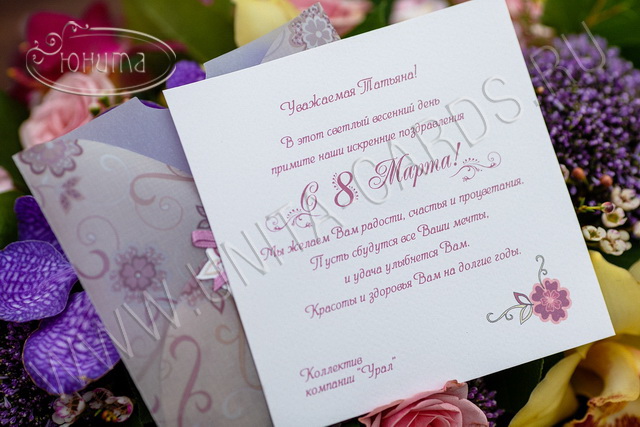 Юнита
Уважаемая Татьяна!
В этот светлый весенний день
примите наши искренние поздравления
С 8 Марта!
Мы желаем Вам радости, счастья и процветания.
Пусть сбудутся все Ваши мечты,
и удача улыбнется Вам.
Красоты и здоровья Вам на долгие годы.
Коллектив
компании "Урал"
WWW.UNITA-CARDS.RU